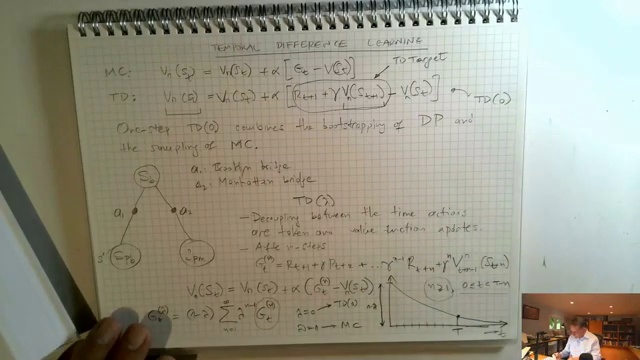 TEMPORAL DIFFERENCE LEARNING
MC: Vπ(St) = Vπ(St) + α [Gt − V(St)]
TD Target
TD: Vπ(St) = Vπ(St) + α [Rt+1 + γ Vπ(St+1) − Vπ(St)]
TD(0)
One-step TD(0) combines the bootstrapping of DP and
the sampling of MC.
a1: Brooklyn bridge
a2: Manhattan bridge
a1
a2
s'
TD(λ)
– Decoupling between the time actions
are taken and value function updates.
– After n-steps
Gt(n) = Rt+1 + γ Rt+2 + ... γ^n-1 Rt+n + γ^n
Vπ(St) = Vπ(St) + α (Gt(n) − Vπ(St))
n≥1,
λ=0 → TD(0)
λ=1 → MC
T